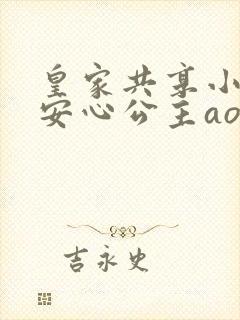 皇家共享小
安心公主ao
吉永史